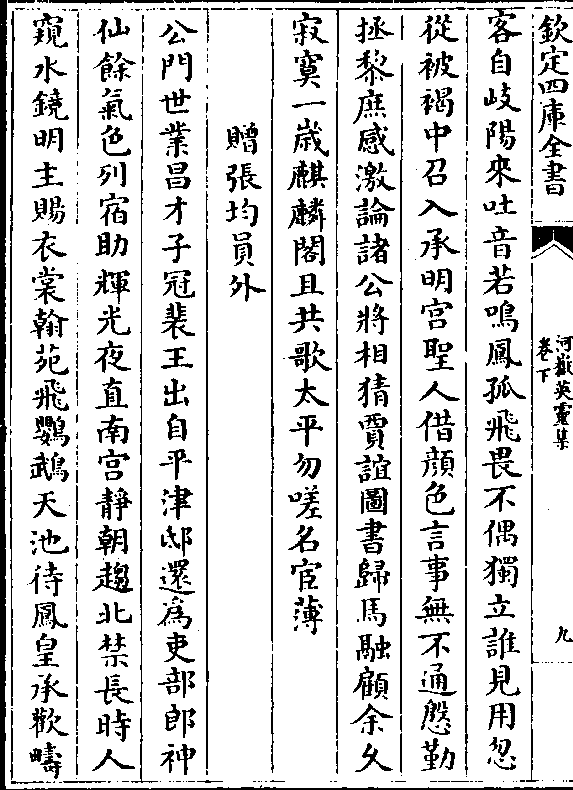 欽定四庫全書
河嶽英靈集
卷下
九
客自岐陽來吐音若鳴鳳孤飛畏不偶獨立誰見用忽
從被褐中召入承明宫聖人借顔色言事無不通慇勤
拯黎庶感激論諸公將相猜賈誼圖書歸馬融顧余乆
寂寞一歳麒麟閣且共歌太平勿嗟名宦薄
贈張均員外
公門世業昌才子冠裴王出自平津邸還為吏部郎神
仙餘氣色列宿助輝光夜直南宫靜朝趨北禁長時人
窺水鏡明主賜衣裳翰苑飛鸚鵡天池待鳳皇承歡疇